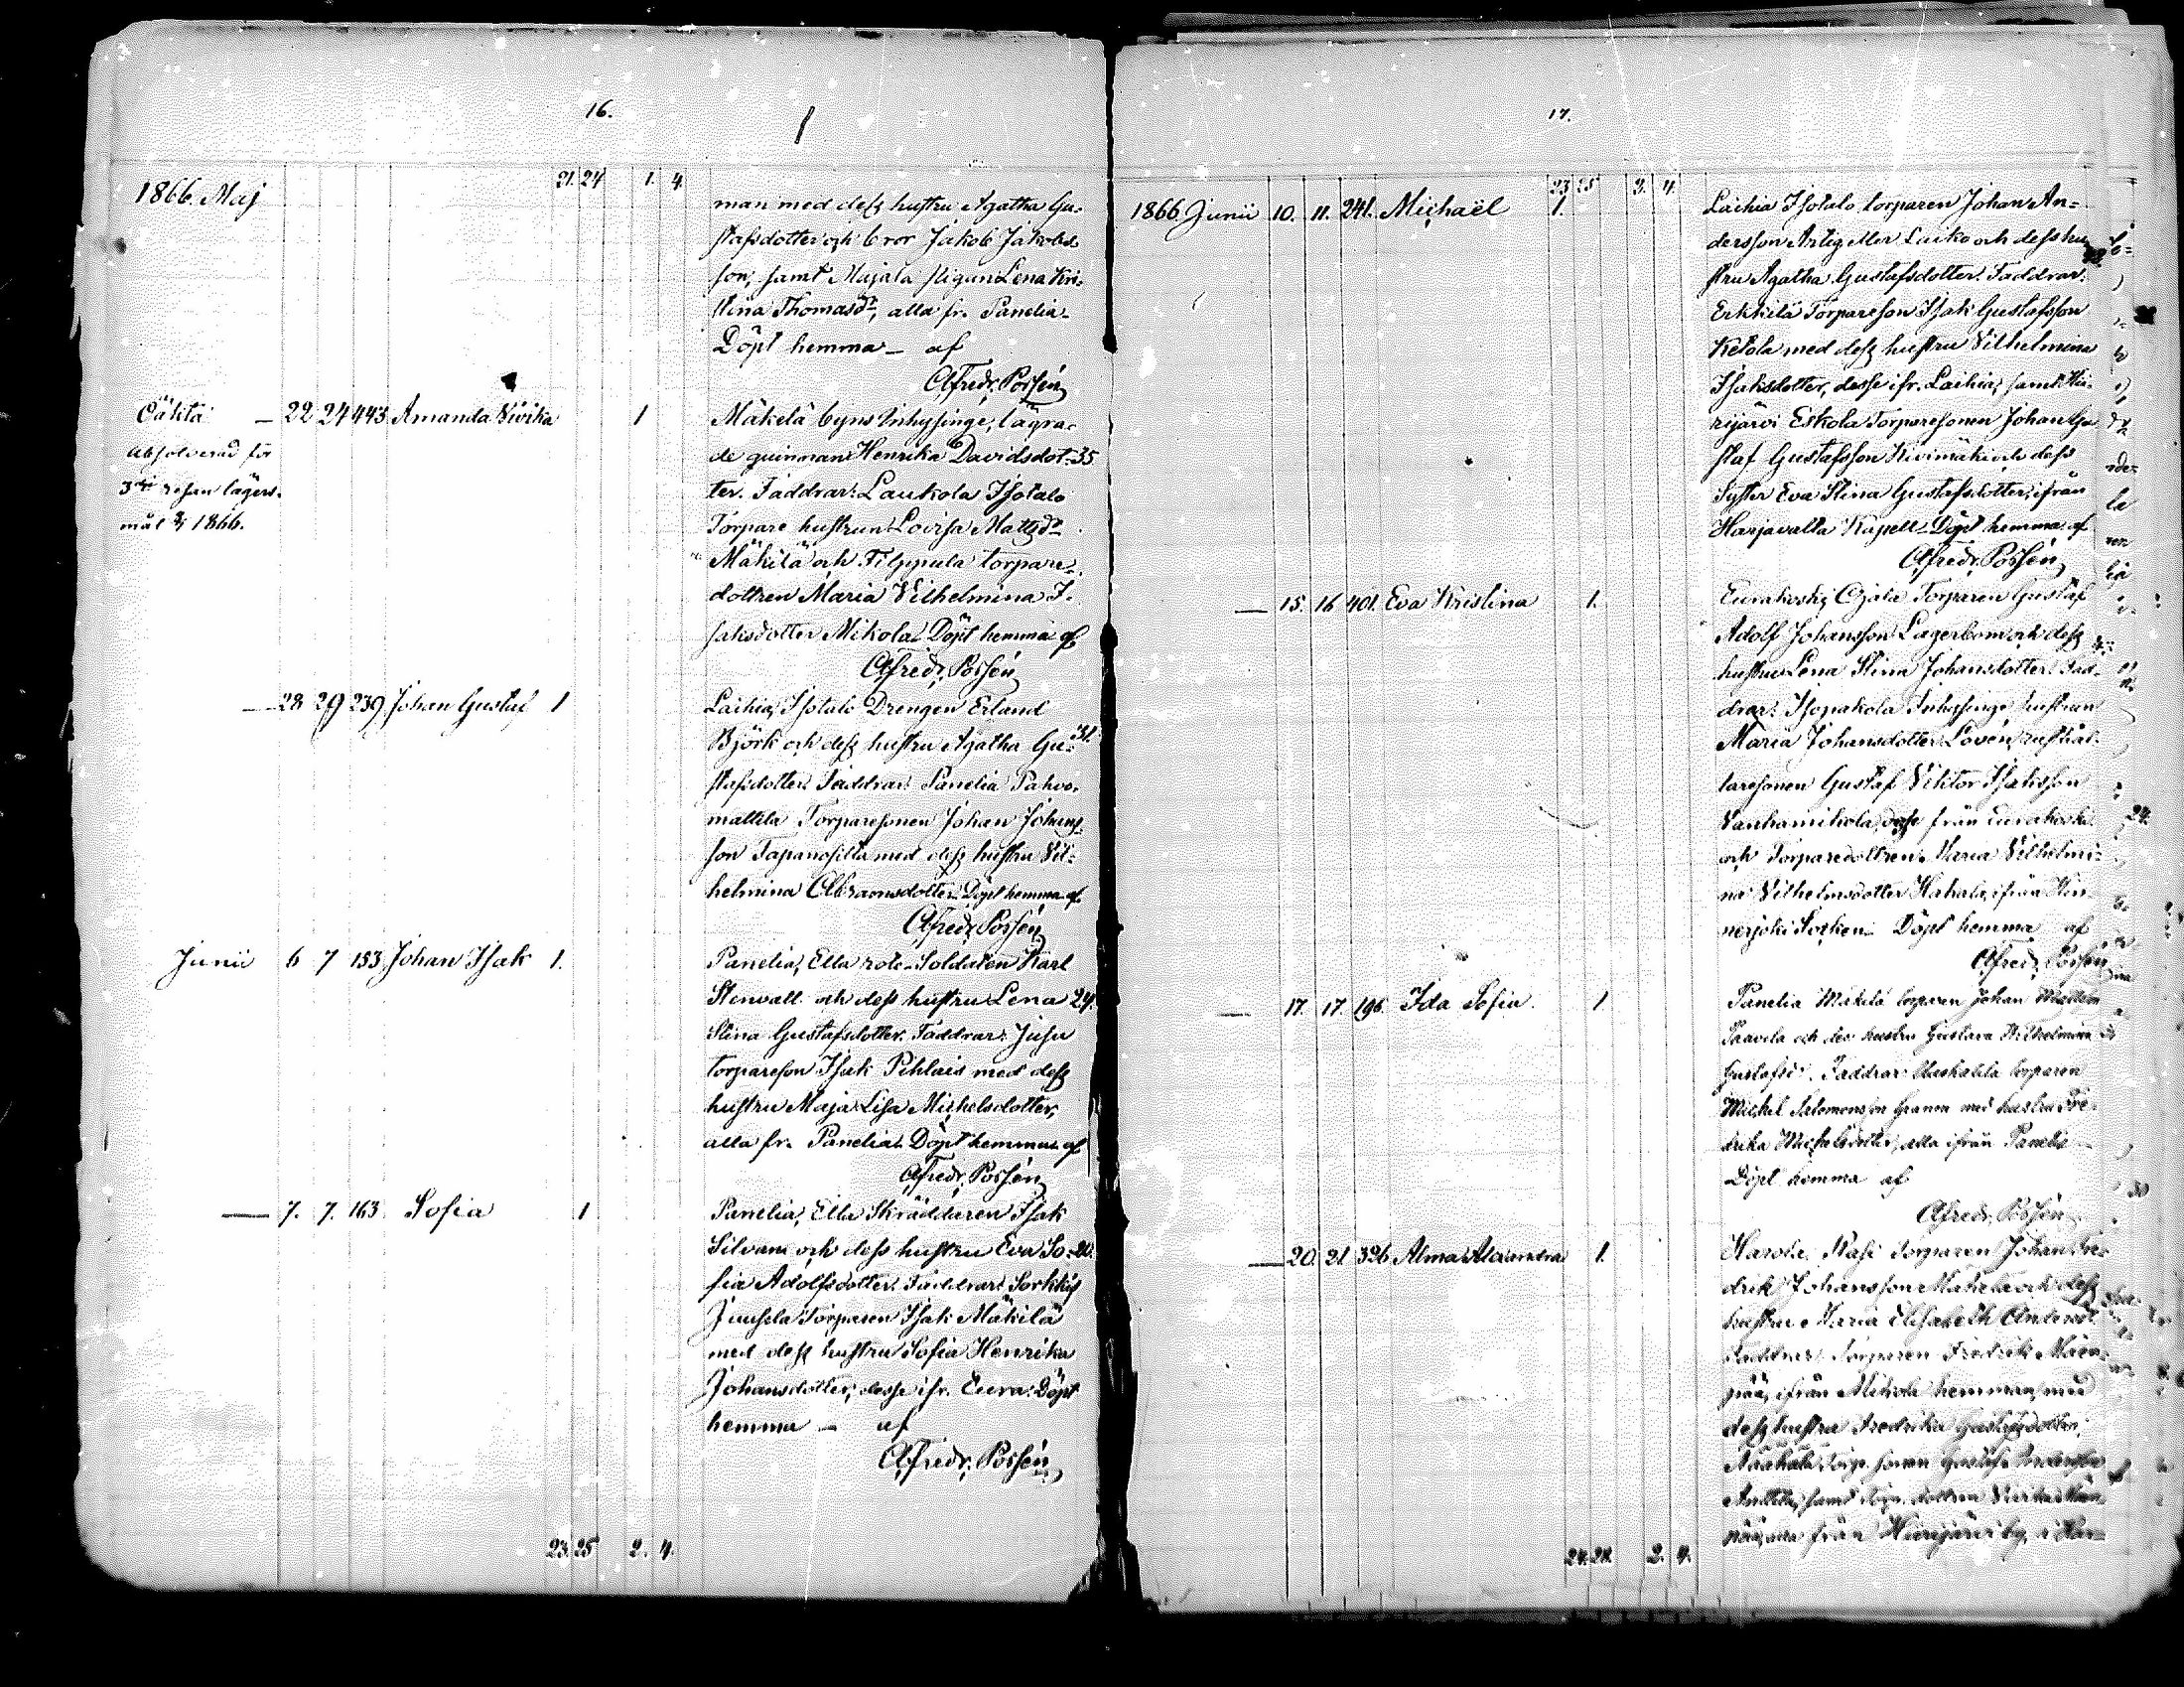 16.
21. 24 1. 4.
1866. Maj
man med dess hustru Agatha Gu-
stafsdotter och bror Jakob Jakobs-
son, samt Majala pigan Lena Kri-
stina Thomasdr, alla fr. Panelia.
Döpt hemma – af
Alfredr. Possén
Oäkta — 22 24 443 Amanda Vivika 1
Absolverad för
3dje resan lägers-
mål 1866.
Mäkelä byns Inhysinge, lägra-
de quinnan Henrika Davidsdot- 35
ter. Faddrar: Laukola Isotalo
Torpare hustrun Lovisa Mattsdr
Mäkilä och Filppula torpare-
dottren Maria Vilhelmina I-
saksdotter Mikola. Döpt hemma af
Alfredr. Possén
— 28 29 239 Johan Gustaf 1
Laihia, Isotalo Drengen Erland
Björk och dess hustru Agatha Gu- 31.
stafsdotter. Faddrar: Panelia Pahvo-
mattila Torparesonen Johan Johans-
son Tapanosilta med dess hustru Vil-
helmina Abramsdotter. Döpt hemma af
Alfredr. Possén
Junii 6 7 153 Johan Isak 1.
Panelia, Ella rote-Soldaten Karl
Stenvall och dess hustru Lena 24.
Stina Gustafsdotter. Faddrar: Jusu
torpareson Isak Pihlais med dess
hustru Maja Lisa Michelsdotter,
alla fr. Panelia. Döpt hemma af
Alfredr. Possén
— 7. 7. 163 Sofia 1
Panelia, Ella Skräddaren Isak
Silvan och dess hustru Eva So-
fia Adolfsdotter. Faddrar: Sorkkis
Juusela Torparen Isak Mäkilä
med dess hustru Sofia Henrika
Johansdotter, desse ifr. Eura. Döpt
hemma – af
Alfredr. Possén
23. 25 2. 4.
17.
23 25 2. 4.
1866. Junii 10. 11. 241. Michaël 1.
Laihia Isotalo torparen Johan An-
dersson Artig eller Luiko och dess hu-
stru Agatha Gustafsdotter. Faddrar:
Erkkilä Torpareson Isak Gustafsson
Ketola med dess hustru Vilhelmina
Isaksdotter, desse ifr. Laihia, samt Hii-
rijärvi Eskola Torparesonen Johan Gu-
staf Gustafsson Kivimäki och dess
Syster Eva Stina Gustafsdotter, ifrån
Harjavalta Kapell. Döpt hemma af
Alfredr. Possén
— 15. 16 401. Eva Kristina 1.
Eurakoski, Ojala Torparen Gustaf
Adolf Johansson Lagerbom och dess
hustru Lena Stina Johansdotter. Fad-
drar: Isopakola Inhysinge hustrun
Maria Johansdotter Lovén, rusthål-
laresonen Gustaf Viktor Isaksson
Vanhamikola, desse från Eurakoski 24.
och Torparedottren Maria Vilhelmi-
na Vilhelmsdotter Hahala, ifrån Hin-
nerjoki Socken. Döpt hemma af
Alfredr. Possén
— 17. 17. 196. Ida Sofia. 1
Panelia Mäkelä torparen Johan
Paavola och dess hustru Gustava Wilhelmina
Gustafsdr. Faddrar: torparen
Michel Salomonsson Granni med hustru Fre-
drika Michelsdotter, alla ifrån Panelia
Döpt hemma af
Alfredr. Possén
— 20. 21. 326. Alma Alexandra 1.
Harola, Rasi Torparen Johan Fre-
drik Johansson Mahala och dess
hustru Maria Elisabeth Andersdr
Faddrar: Torparen Fredrik Män-
pää, ifrån Mikola hemman, med
dess hustru Fredrika Gustafsdotter,
Torp. sonen Gustaf
Anttila, samt torp. dottren Vivika Män-
pää, alla från Hiirijärvi by, i Har-
24. 28. 2. 4.